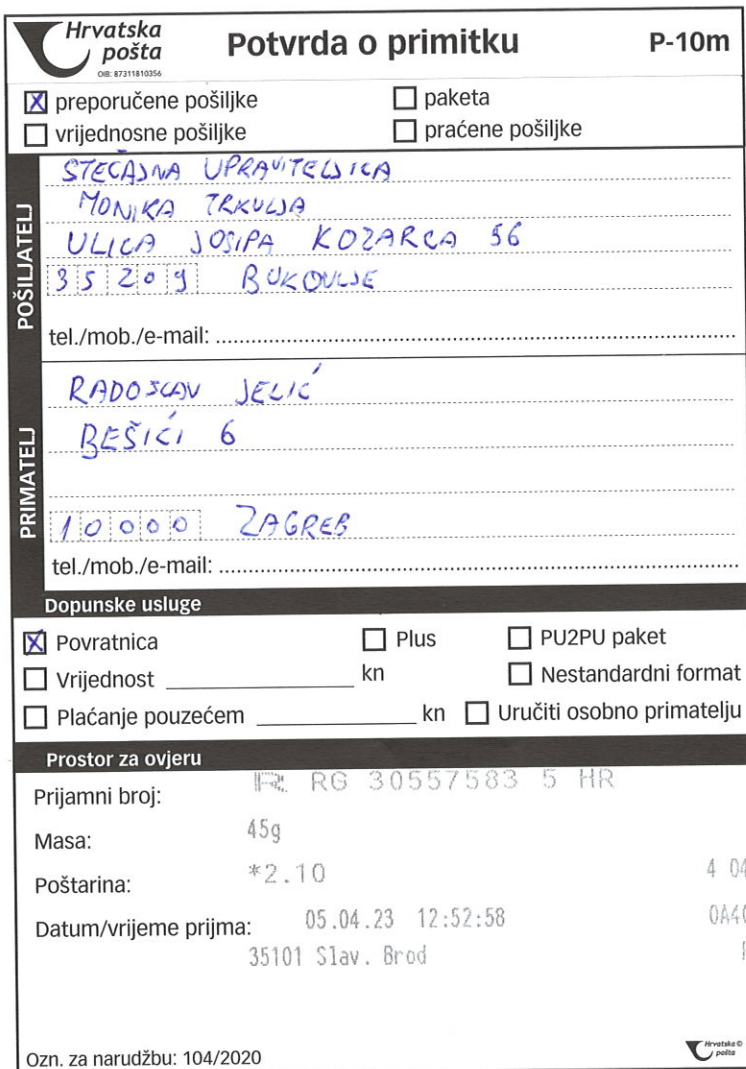 Hrvatska pošta
OIB: 87311810356
Potvrda o primitku
P-10m
☒ preporučene pošiljke ☐ paketa
☐ vrijednosne pošiljke ☐ praćene pošiljke
POŠILJATELJ
STEČAJNA UPRAVITELJICA
MONIKA TRKULJA
ULICA JOSIPA KOZARCA 56
35209 BUKOVLJE
tel./mob./e-mail:
PRIMATELJ
RADOSLAV JELIĆ
BEŠIĆI 6
10000 ZAGREB
tel./mob./e-mail:
Dopunske usluge
☒ Povratnica ☐ Plus ☐ PU2PU paket
☐ Vrijednost kn ☐ Nestandardni format
☐ Plaćanje pouzećem kn ☐ Uručiti osobno primatelju
Prostor za ovjeru
Prijamni broj: R RG 30557583 5 HR
Masa: 45g
Poštarina: *2.10 4 04
Datum/vrijeme prijma: 05.04.23 12:52:58
35101 Slav. Brod
Ozn. za narudžbu: 104/2020
Hrvatska pošta